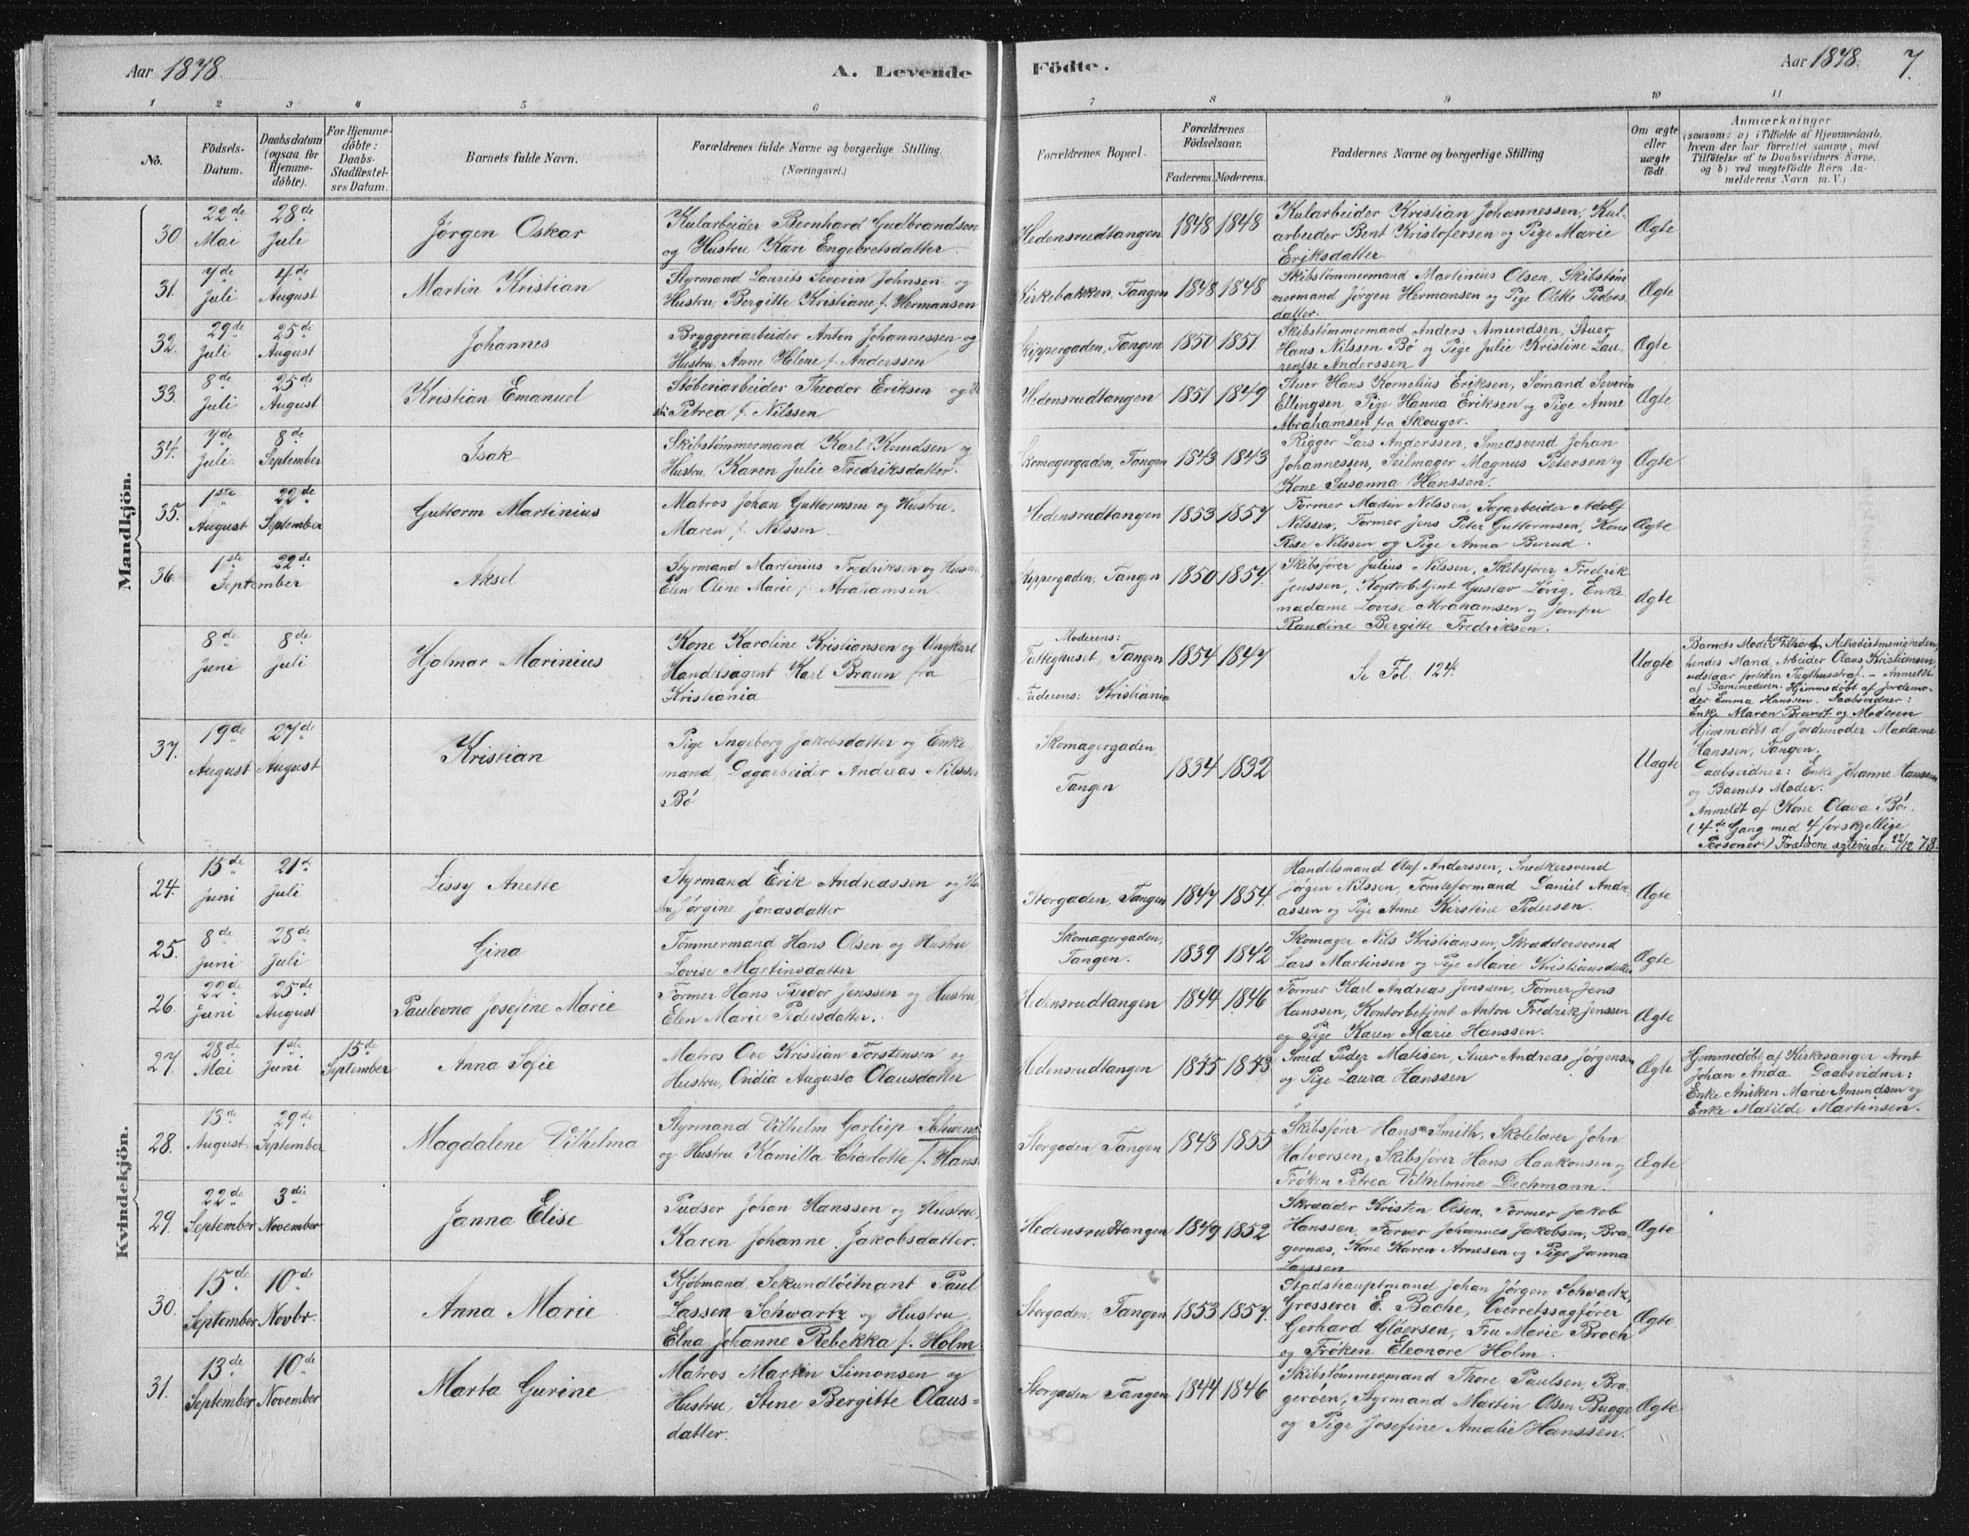 Aar 1878.
A. Levende Födte.
Aar 1878.
7.
1 2 3 4 5 6 7 8 9 10 11
No.
Födsels-Datum.
Daabsdatum (ogsaa for Hjemme-döbte).
For Hjemme-döbte: Daabs-Stadfæstelses Datum.
Barnets fulde Navn.
Forældrenes fulde Navne og borgerlige Stilling.
(Næringsvei.)
Forældrenes Bopæl.
Forældrenes Födselsaar.
Faderens. Moderens.
Faddernes Navne og borgerlige Stilling
Om ægte eller uægte födt.
Anmærkninger
(saasom: a) i Tilfælde af Hjemmedaab, hvem der har forrettet samme, med Tilföielse af to Daabsvidners Navne, og b) ved uægtefödte Börn Anmelderens Navn m. V.)
Mandkjön.
30 22de Mai 28de Juli Jørgen Oskar Kularbeider Bernhard Gudbrandsen og Hustru Kari Engebretsdatter Hedensrudtangen 1848 1848 Kularbeider Kristian Johannessen, Kularbeider Bent Kristofersen og Pige Marie Eriksdatter. Ægte
31. 7de Juli 4de August Martin Kristian Styrmand Laurits Severin Johnsen og Hustru Bergitte Kristiane f. Hermansen Kirkebakken, Tangen 1848 1848 Skibstømmermand Martinius Olsen, Skibstømmermand Jørgen Hermansen og Pige Olette Pedersdatter. Ægte
32. 29de Juli 25de August Johannes Bryggeriarbeider Anton Johannessen og Hustru Anne Helene f. Anderssen Skippergaden, Tangen 1850 1851 Skibstømmermand Anders Amundsen, Stuer Hans Nilssen Bø og Pige Julie Kristine Laurentse Anderssen Ægte
33. 8de Juli 25de August Kristian Emanuel Støberiarbeider Theodor Eriksen og Hustru Petrea f. Nilssen Hedensrudtangen 1851 1849 Stuer Hans Kornelius Eriksen, Sømand Severin Ellingsen, Pige Hanna Eriksen og Pige Anne Abrahamsen fra Skouger. Ægte
34. 7de Juli 8de September Isak Skibstømmermand Karl Knudsen og Hustru, Karen Julie Fredriksdatter. Skomagergaden, Tangen 1843 1843 Rigger Lars Anderssen, Smedsvend Johan Johannessen, Seilmager Magnus Petersen og Kone Susanna Hanssen. Ægte
35. 1ste August 22de September Guttorm Martinius Matros Johan Guttormsen og Hustru, Maren f. Nilssen Hedensrudtangen 1853 1857 Former Martin Nilssen, Sagarbeider Adolf Nilssen, Former Jens Peter Guttormsen, Kone Rise Nilssen og Pige Anna Berud. Ægte
36. 1ste 22de September Aksel Styrmand Martinius Fredriksen og Hustru Elen Oline Marie f. Abrahamsen. Skippergaden, Tangen 1850 1854. Skibsfører Julius Nilssen, Skibsfører Fredrik Jenssen, Kontorbetjent Gustav Løvig, Enkemadame Lovise Abrahamsen og Jomfru Randine Bergitte Fredriksen. Ægte
8de Juni 8de Juli Hjalmar Marinius Kone Karoline Kristiansen og Ungkarl Handelsagent Karl Braun fra Kristiania Moderens: Fattighuset, Tangen Faderens: Kristiania 1854 1847 Se Fol. 124. Uægte Barnets Moder tilhører Methodistmenigheden, hendes Mand, Arbeider Olaus Kristiansen, udstaar for tiden Tugthusstraf. - Anmeldt af Barnemoderen. Hjemmedøbt af Jordemoder Emma Hanssen. Daabsvidner: Enke Maren Brandt og Moderen
37. 19de August 27de August Kristian Pige Ingeborg Jakobsdatter og Enkemand, Dagarbeider Andreas Nilssen Bø Skomagergaden, Tangen 1834 1832 Uægte Hjemmedøbt af Jordemoder Madame Hanssen, Tangen. Daabsvidner: Enke Johanne Hanssen og Barnets Moder. Anmeldt af Kone Olava Bø. (4de Gang med 4 forskjellige Personer.) Forældrene ægteviede 22/12 78.
Kvindekjön.
24. 15de Juni 21d Juli Lissy Anette Styrmand Erik Andreassen og Hustru Jørgine Jonasdatter Storgaden, Tangen 1847 1854. Handelsmand Olaf Anderssen, Snedkersvend Jørgen Nilssen, Tomteformand Daniel Andreassen og Pige Anne Kirstine Pedersen. Ægte
25. 8de Juni 28de Juli Gina Tømmermand Hans Olsen og Hustru Lovise Martinsdatter Skomagergaden, Tangen. 1839 1842 Skomager Nils Kristiansen, Skræddersvend Lars Martinsen og Pige Marie Kristiansdatter Ægte
26. 22de Juni 25de August Paulovna Josefine Marie Former Hans Teodor Jenssen og Hustru, Elen Marie Pedersdatter. Hedensrudtangen 1844 1846 Former Karl Andreas Jenssen, Former Jens Hanssen, Kontorbetjent Anton Fredrik Jenssen og Pige Karen Marie Hanssen. Ægte
27. 28de Mai 1ste Juni 15de September Anna Sofie Matros Ove Kristian Torstensen og Hustru, Ovidia Augusta Olausdatter Hedensrudtangen 1845 1853 Smed Peder Matisen, Stuer Andreas Jørgensen og Pige Laura Hanssen Ægte Hjemmedøbt af Kirkesanger Arnt Johan Anda. Daabsvidner: Enke Aniken Marie Amundsen og Enke Matilde Martinsen.
28. 15de August 29de September Magdalene Vilhelma Styrmand Vilhelm Garliep Schwenc og Hustru Kamilla Charlotte f. Hans Storgaden Tangen 1848 1855 Skibsfører Hans Smith, Skolelærer John Halvorsen, Skibsfører Hans Haakonsen og Frøken Petrea Vilhelmine Dechmann. Ægte
29. 22de September 3die November Janna Elise Pudser Johan Hanssen og Hustru, Karen Johanne Jakobsdatter. Hedensrudtangen 1849 1852 Skrædder Kristen Olsen, Former Jakob Hanssen, Farver Johannes Jakobsen, Bragernæs, Kone Karen Arnesen og Pige Janna Larssen Ægte
30. 15de September 10de Novbr. Anna Marie Kjøbmand, Sekundløitnant Paul Lassen Schwartz og Hustru, Elna Johanne Rebekka f. Holm Storgaden, Tangen 1853 1857. Stadshauptmand Johan Jørgen Schwartz, Grosserer E. Bache, Overretssagfører Gerhard Gløersen, Fru Marie Broch og Frøken Eleonore Holm. Ægte
31. 13de September 10de November Marta Gurine Matros Martin Simonsen og Hustru, Stine Bergitte Olausdatter. Storgaden Tangen 1844 1846 Skibstømmermand Thore Paulsen, Bragerøen, Styrmand Martin Olsen Bugge og Pige Josefine Amalie Hanssen. Ægte